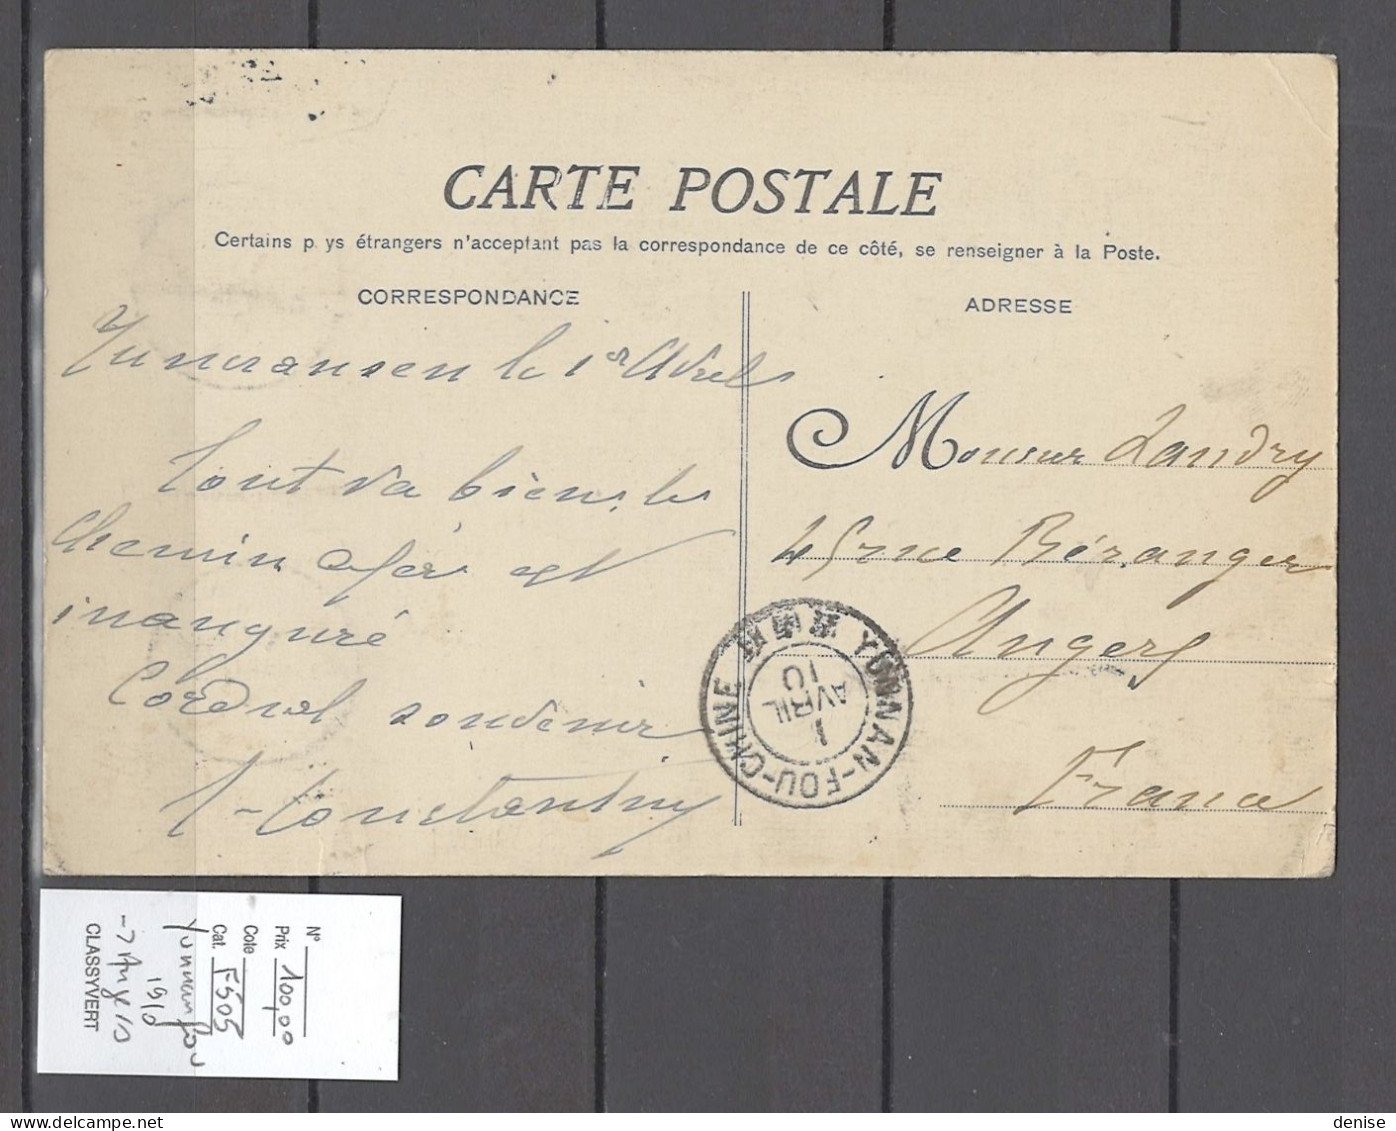 CARTE POSTALE
Certains p ys étrangers n'acceptant pas la correspondance de ce côté, se renseigner à la Poste.
CORRESPONDANCE
ADRESSE
Yunnansen le 1er Avril
Tout va bien, le
chemin de fer est
inauguré
Cordial souvenir
Monsieur Landry
45 rue Béranger
Angers
France
YUNNAN-FOU-CHINE
1
AVRIL
10
N°
Prix 100,00
Cote
Cat. F505
Yunnan fou
1910
-> Angers
CLASSYVERT
denise